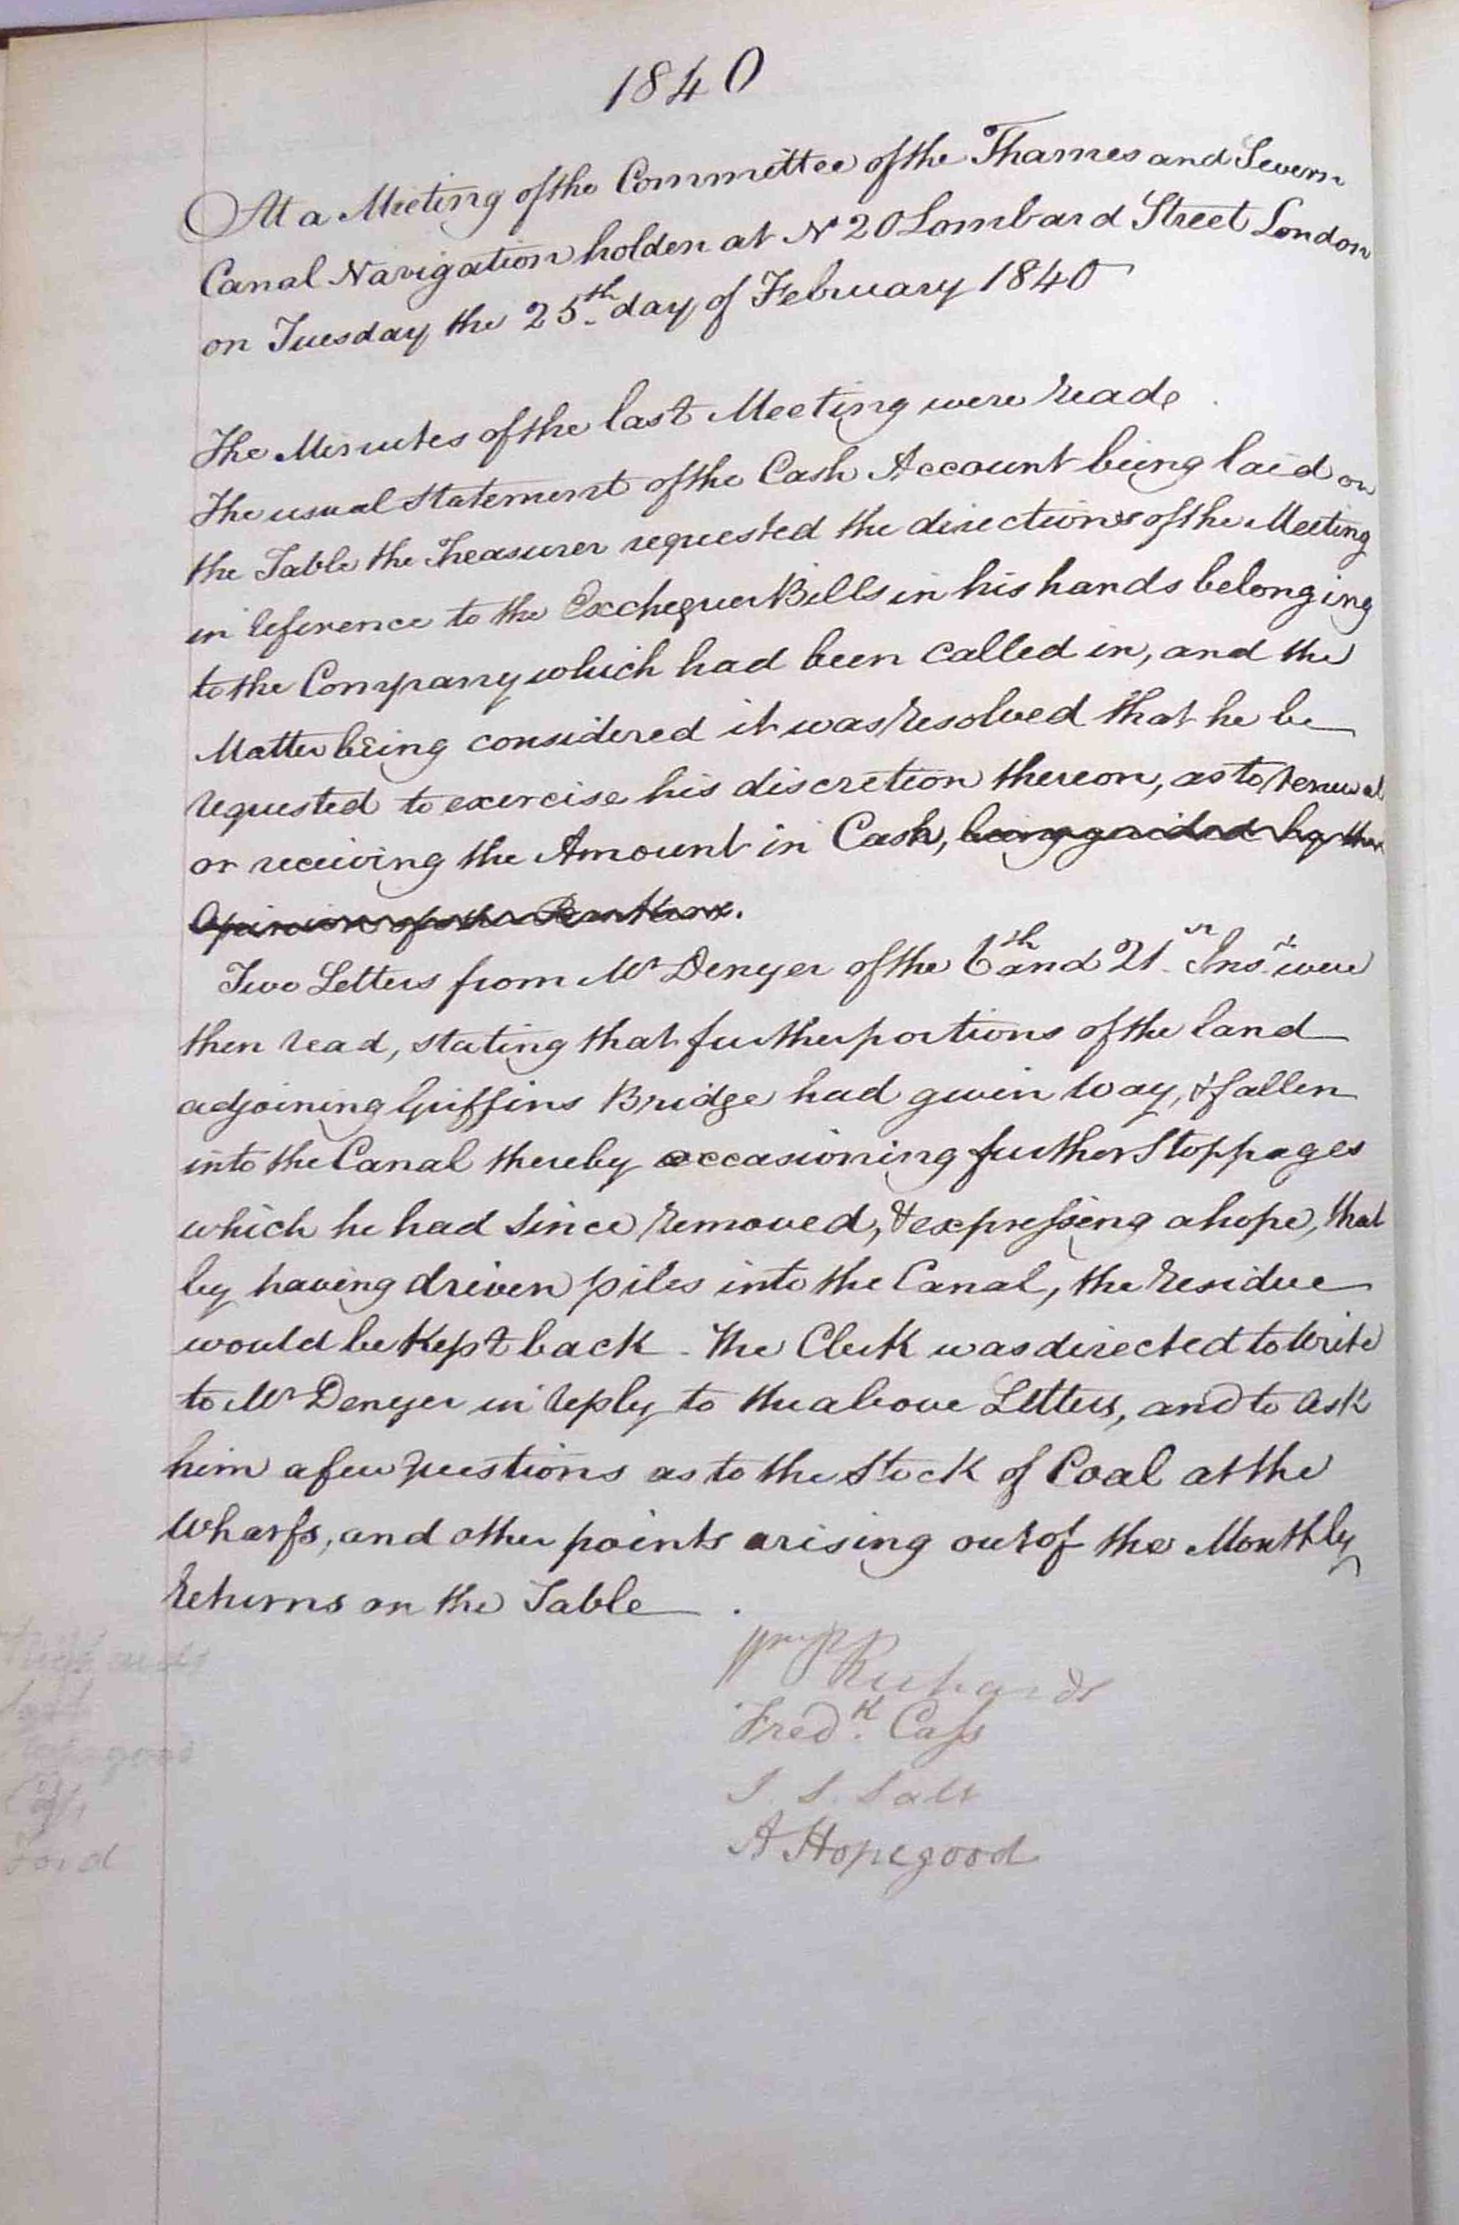 1840
At a Meeting of the Committee of the Thames and Severn
Canal Navigation holden at No 20 Lombard Street London
on Tuesday the 25th day of February 1840
The Minutes of the last Meeting were read.
The usual Statement of the Cash Account being laid on
the Table the Treasurer requested the directions of the Meeting
in reference to the Exchequer Bills in his hands belonging
to the Company which had been called in, and the
Matter being considered it was resolved that he be
requested to exercise his discretion thereon, as to renewal
or receiving the Amount in Cash, being guided by the
Opinion of the Bankers.
Two Letters from Mr Denyer of the 6th and 21st Inst were
then read, stating that further portions of the land
adjoining Griffins Bridge had given way, & fallen
into the Canal thereby occasioning further Stoppages
which he had since removed, & expressing a hope, that
by having driven piles into the Canal, the residue
would be kept back. The Clerk was directed to write
to Mr Denyer in reply to the above Letters, and to ask
him a few questions as to the Stock of Coal at the
Wharfs, and other points arising out of the Monthly
returns on the Table.
Wm P Richards
Fredk. Cass
J. S. Salt
A Hopegood
Richards
Salt
Hopegood
Cass
Ford